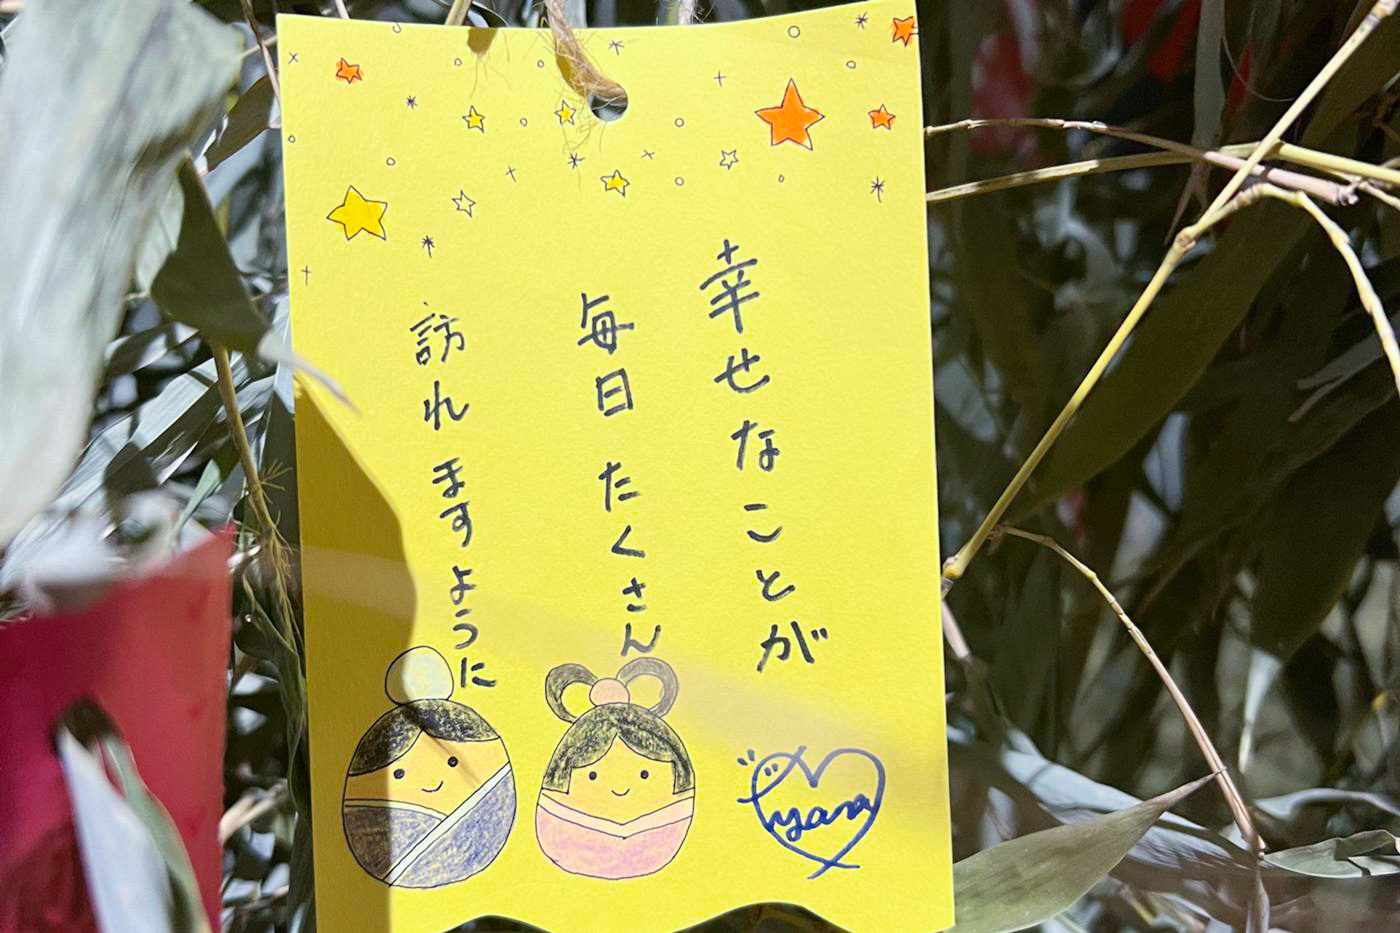 幸せなことが
毎日たくさん
訪れますように